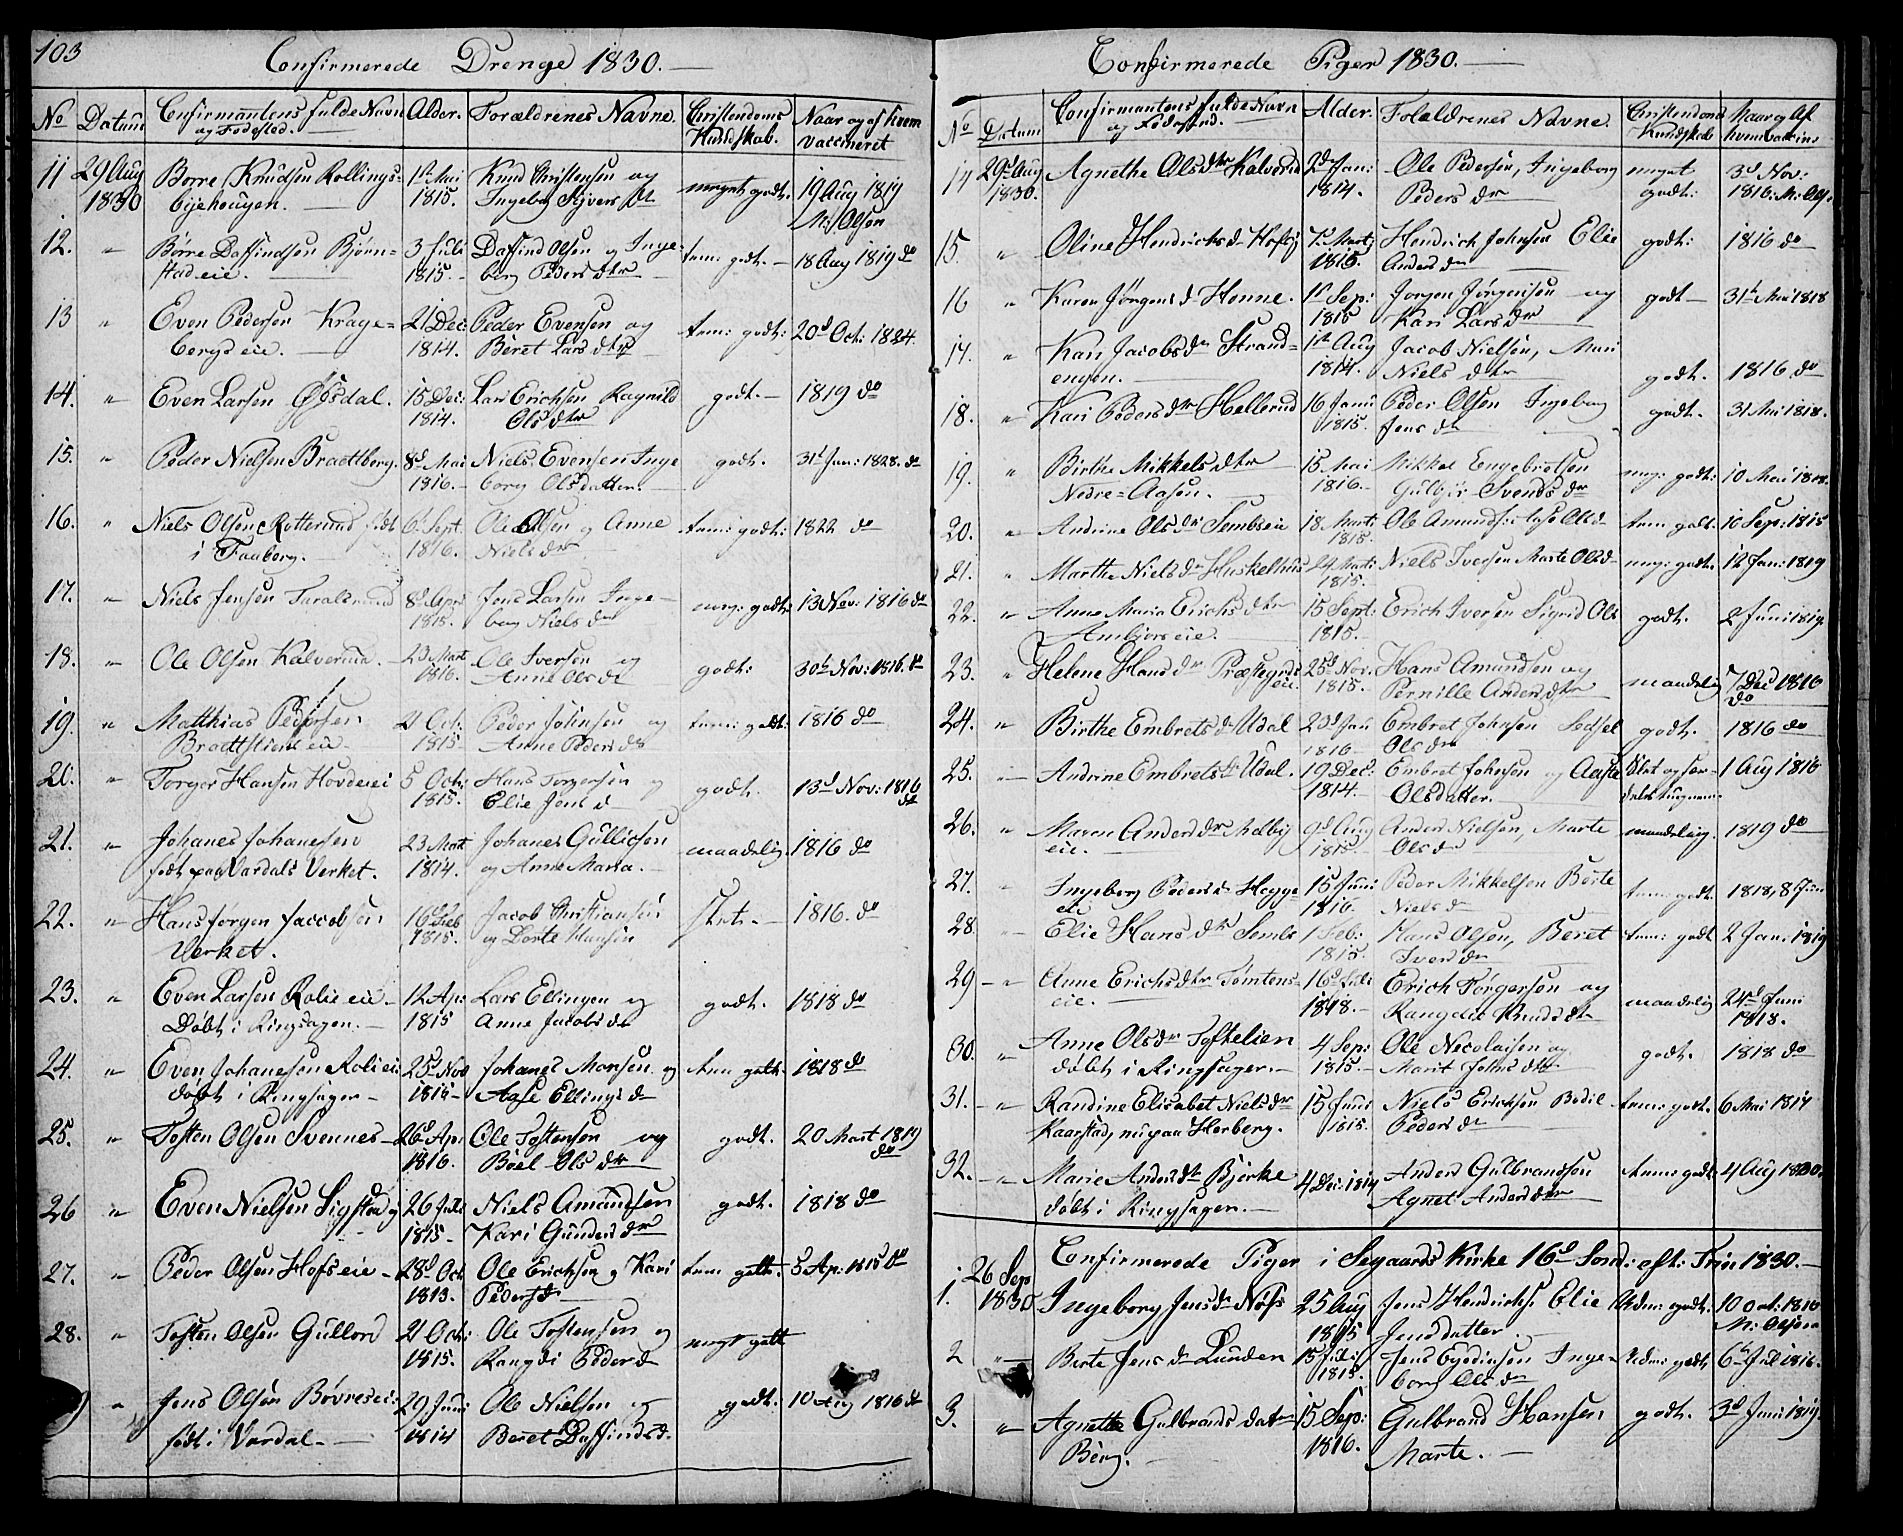 103
Confirmerede Drenge 1830.
No Datum Confirmantens fulde Navn og Fødested. Alder. Forældrenes Navne. Christendoms Kundskab. Naar og af hvem vaccineret
11 29 Aug 1830 Børre Knudsen Rollings-
eiehougen. 1st Mai 1815. Knud Christensen og
Ingeborg Syvers dtr meget godt. 19 Aug 1819 M. Olsen
12. " Børre Daffindsen Bjørn-
stadeie. 3 Juli 1815. Daffind Olsen og Inge-
borg Peders dtr tem: godt. 18 Aug 1819 do
13 " Even Pedersen Krage-
bergs eie. 21 Dec: 1814. Peder Evensen og
Beret Lars dtr tem: godt: 20d Oct: 1824.
14. " Even Larsen Øfsdal. 15 Dec: 1814. Lars Erichsen Ragnild
Ols dtr godt. 1819 do
15. " Peder Nielsen Braattberg. 8d Mai 1816. Niels Evensen Inge
borg Olsdatter. godt. 31t Jan: 1828. do
16. " Niels Olsen Rotterud født
i Faaberg. 6t Sept. 1816. Ole Olsen og Anne
Niels dr tem: godt: 1822 do
17. " Niels Jensen Taralsrud 8d Apr: 1815. Jens Larsen Inge-
borg Niels dr meg: godt: 13 Nov: 1816 do
18. " Ole Olsen Kalverud. 23 Mart 1816. Ole Iversen og
Anne Ols dr godt: 30t Nov: 1816. do
19. " Matthias Pedersen
Braattliens eie. 21 Oct: 1815 Peder Johnsen og
Anne Peders dr tem: godt: 1816 do
20. " Torger Hansen Hovdeeiei 5 Oct: 1815. Hans Torgersen og
Elie Jens d godt. 13d Nov: 1816 do
21. " Johanes Johanesen
født paa Vardals Verket. 23 Mart 1814. Johanes Gullicsen
og Anne Maria. maadelig. 1816 do
22. " Hans Jørgen Jaccobsen
Verket. 16d Feb 1815. Jacob Christiansen
og Dorte Hansen slet. 1816. do
23. " Even Larsen Rolieeie
Døbt i Ringsagen. 12 Ap: 1815 Lars Ellingen og
Anne Jacobs dr godt. 1818 do
24. " Even Johanesen Rolieei
døbt i Ringsager 25d Nov 1815 Johanes Monsen og
Aase Ellings d tem godt. 1818 do
25. " Tosten Olsen Svennes 26d Ap: 1816. Ole Tostensen og
Boel Ols dr godt. 20 Mart 1819 do
26 " Even Nielsen Sigstad 26 Juli 1815 Niels Amundsen
Kari Gunders dr godt. 1818 do
27. " Peder Olsen Hofseie 28d Oct 1813. Ole Ericksen og Kari
Peders d. tem: godt. 5 Ap: 1815 do
28. " Tosten Olsen Gullord 21 Oct: 1815. Ole Tostensen og
Rangdi Peder d meget godt
" Jens Olsen Bøvreseie
født i Vardal. 29 Juni 1814 Ole Nielsen og
Beret Daffinds d. godt. 10 Aug 1816 do
Confirmerede Piger 1830.
No Datum Confirmantens fulde Navn og Fødested. Alder. Forældrenes Navne. Christendoms Kundskab Naar og Af hvem vaccine
14 29d Aug 1830. Agnethe Ols dtr Kalverud 2d Jan: 1814. Ole Pedersen, Ingeborg
Peders dr meget godt: 3d Nov: 1816. M: Ols.
15. " Oline Hendrichs dr Hofby 7d Marty 1815. Hendrich Johnsen Elie
Anders dr godt: 1816 do
16 " Karen Jørgens d Honne. 1t Sep: 1815 Jorgen Jørgensen og
Kari Lars dr godt 31t Mai 1818
17. " Kari Jacobs dr Strand-
engen. 1t Aug 1814. Jacob Nielsen, Mari
Niels dtr godt. 1816. do
18. " Kari Peders dtr Hellerud 16 Janu 1815. Peder Olsen Ingeborg
Jens dr godt. 31 Mai 1818.
19. " Birthe Mikkels dtr
Nedre-Aasen. 15 Mai 1816. Mikkel Engebretsen
Gulbjør Svends dr meg: godt: 10 Mai 1818.
20. " Andrine Ols dr Sembseie 18. Marti 1815. Ole Amunds: Aase Ols d tem godt. 10 Sep: 1815
21. " Marthe Niels dr Huskelhus 24 Marti 1815. Niels Iversen Marte Ols d meg: godt. 12 Jan: 1819
22. " Anne Maria Erichs dtr
Ambjørs eie. 15 Sept: 1815. Erich Iversen Sigrid Ols godt. 2 Juni 1819.
23. " Helene Hans dr Præstegrds
eie. 25d Nov. 1815. Hans Amundsen og
Pernille Anders dtr maadelig 7 Dec 1816 do
24. " Birthe Embrets dr Udal 23d Jan 1816 Embret Johnsen Sedsel
Ols dr godt. 1816 do
25. Andrine Embrets dr Udal. 19 Dec: 1814. Embret Johnsen og Aaste
Olsdatter. 1 Aug 1816
26. " Maren Anders dtr Melby
eie. 9d Aug 1815. Anders Nielsen, Marte
Ols dr maadelig. 1819 do
27. " Ingeborg Peders dr Hegge
eie 15 Juni 1816. Peder Mikkelsen Børte
Niels dr tem: godt. 1818, 8 Jun
28. Elie Hans dtr Sembs 1 Feb: 1815. Hans Olsen, Beret
Ivers dr tem: godt 2 Jan: 1819
29 " Anne Erichs dtr Tomtens-
eie. 16d Juli 1818. Erich Torgersen og
Rangdie Knuds dtr maadelig 24d Juni 1818.
30. " Anne Ols dr Toftelien
døbt i Ringsager. 4 Sep: 1815. Ole Necolaisen og
Marit Johns dtr godt. 1818 do
31. " Randine Elisabet Niels dr
Kaarstad, nu paa Herberg. 15 Juni 1815. Niels Ericksen Bodil
Peders dr tem: godt. 6 Mai 1817
32. " Marie Anders dtr Bjerke
døbt i Ringsager. 4 Dec: 1814 Anders Gulbrandsen
Agnet Anders dtr tem: godt 4 Aug 1820.
Confirmerede Piger i Segaards Kirke 16d Sond: eft: Trin 1830.
1. 26 Sep 1830 Ingeborg Jens dr Nøfs 25 Aug 1815 Jens Hendrichs. Elie
Jensdatter. Udm: godt. 10 Oct: 1816 M: Olsen
2 " Berte Jens dr Lunden 15 Juli 1815. Jens Egedinsen Inge-
borg Ols dr Udm: godt. 6t Jul 1816.
3. " Agnette Gulbrands datr
Berg. 15 Sep: 1816. Gulbrand Hansen
Marte. godt. 3d Juni 1819.